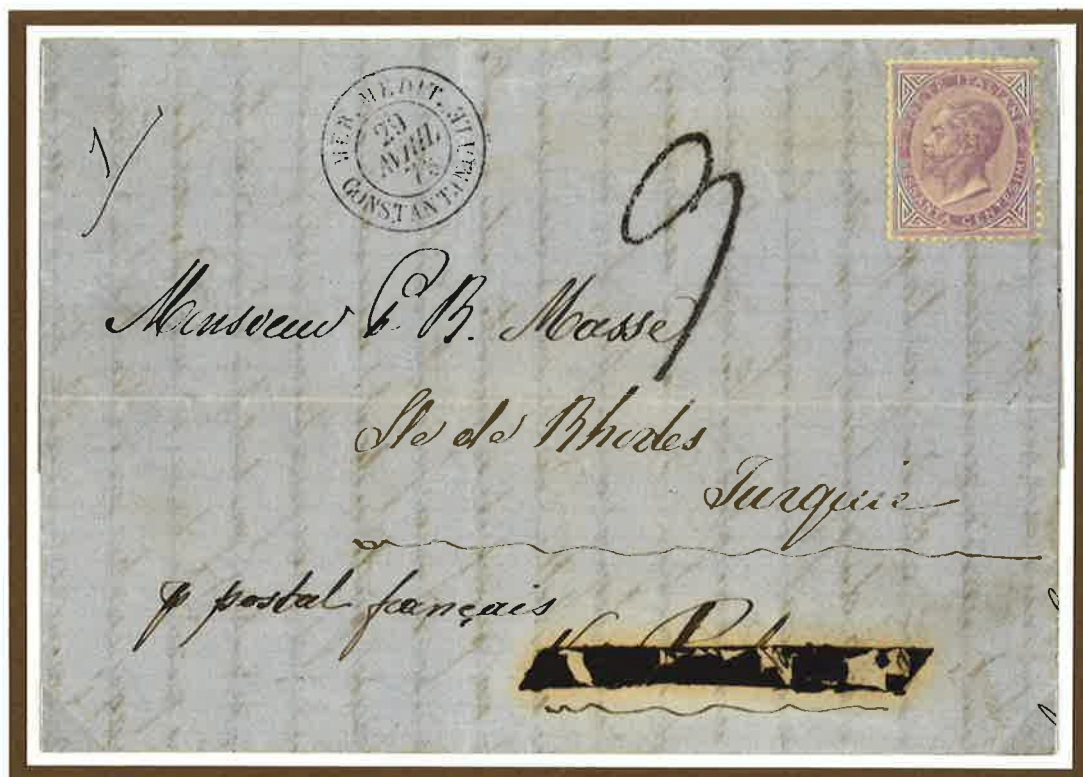 1/
MER. MEDIT.
29
AVRIL
CONSTANT.
POSTE ITALIANE
SESSANTA CENTESIMI
9
Monsieur P. B. Masse
Ile de Rhodes
Turquie
p postal français